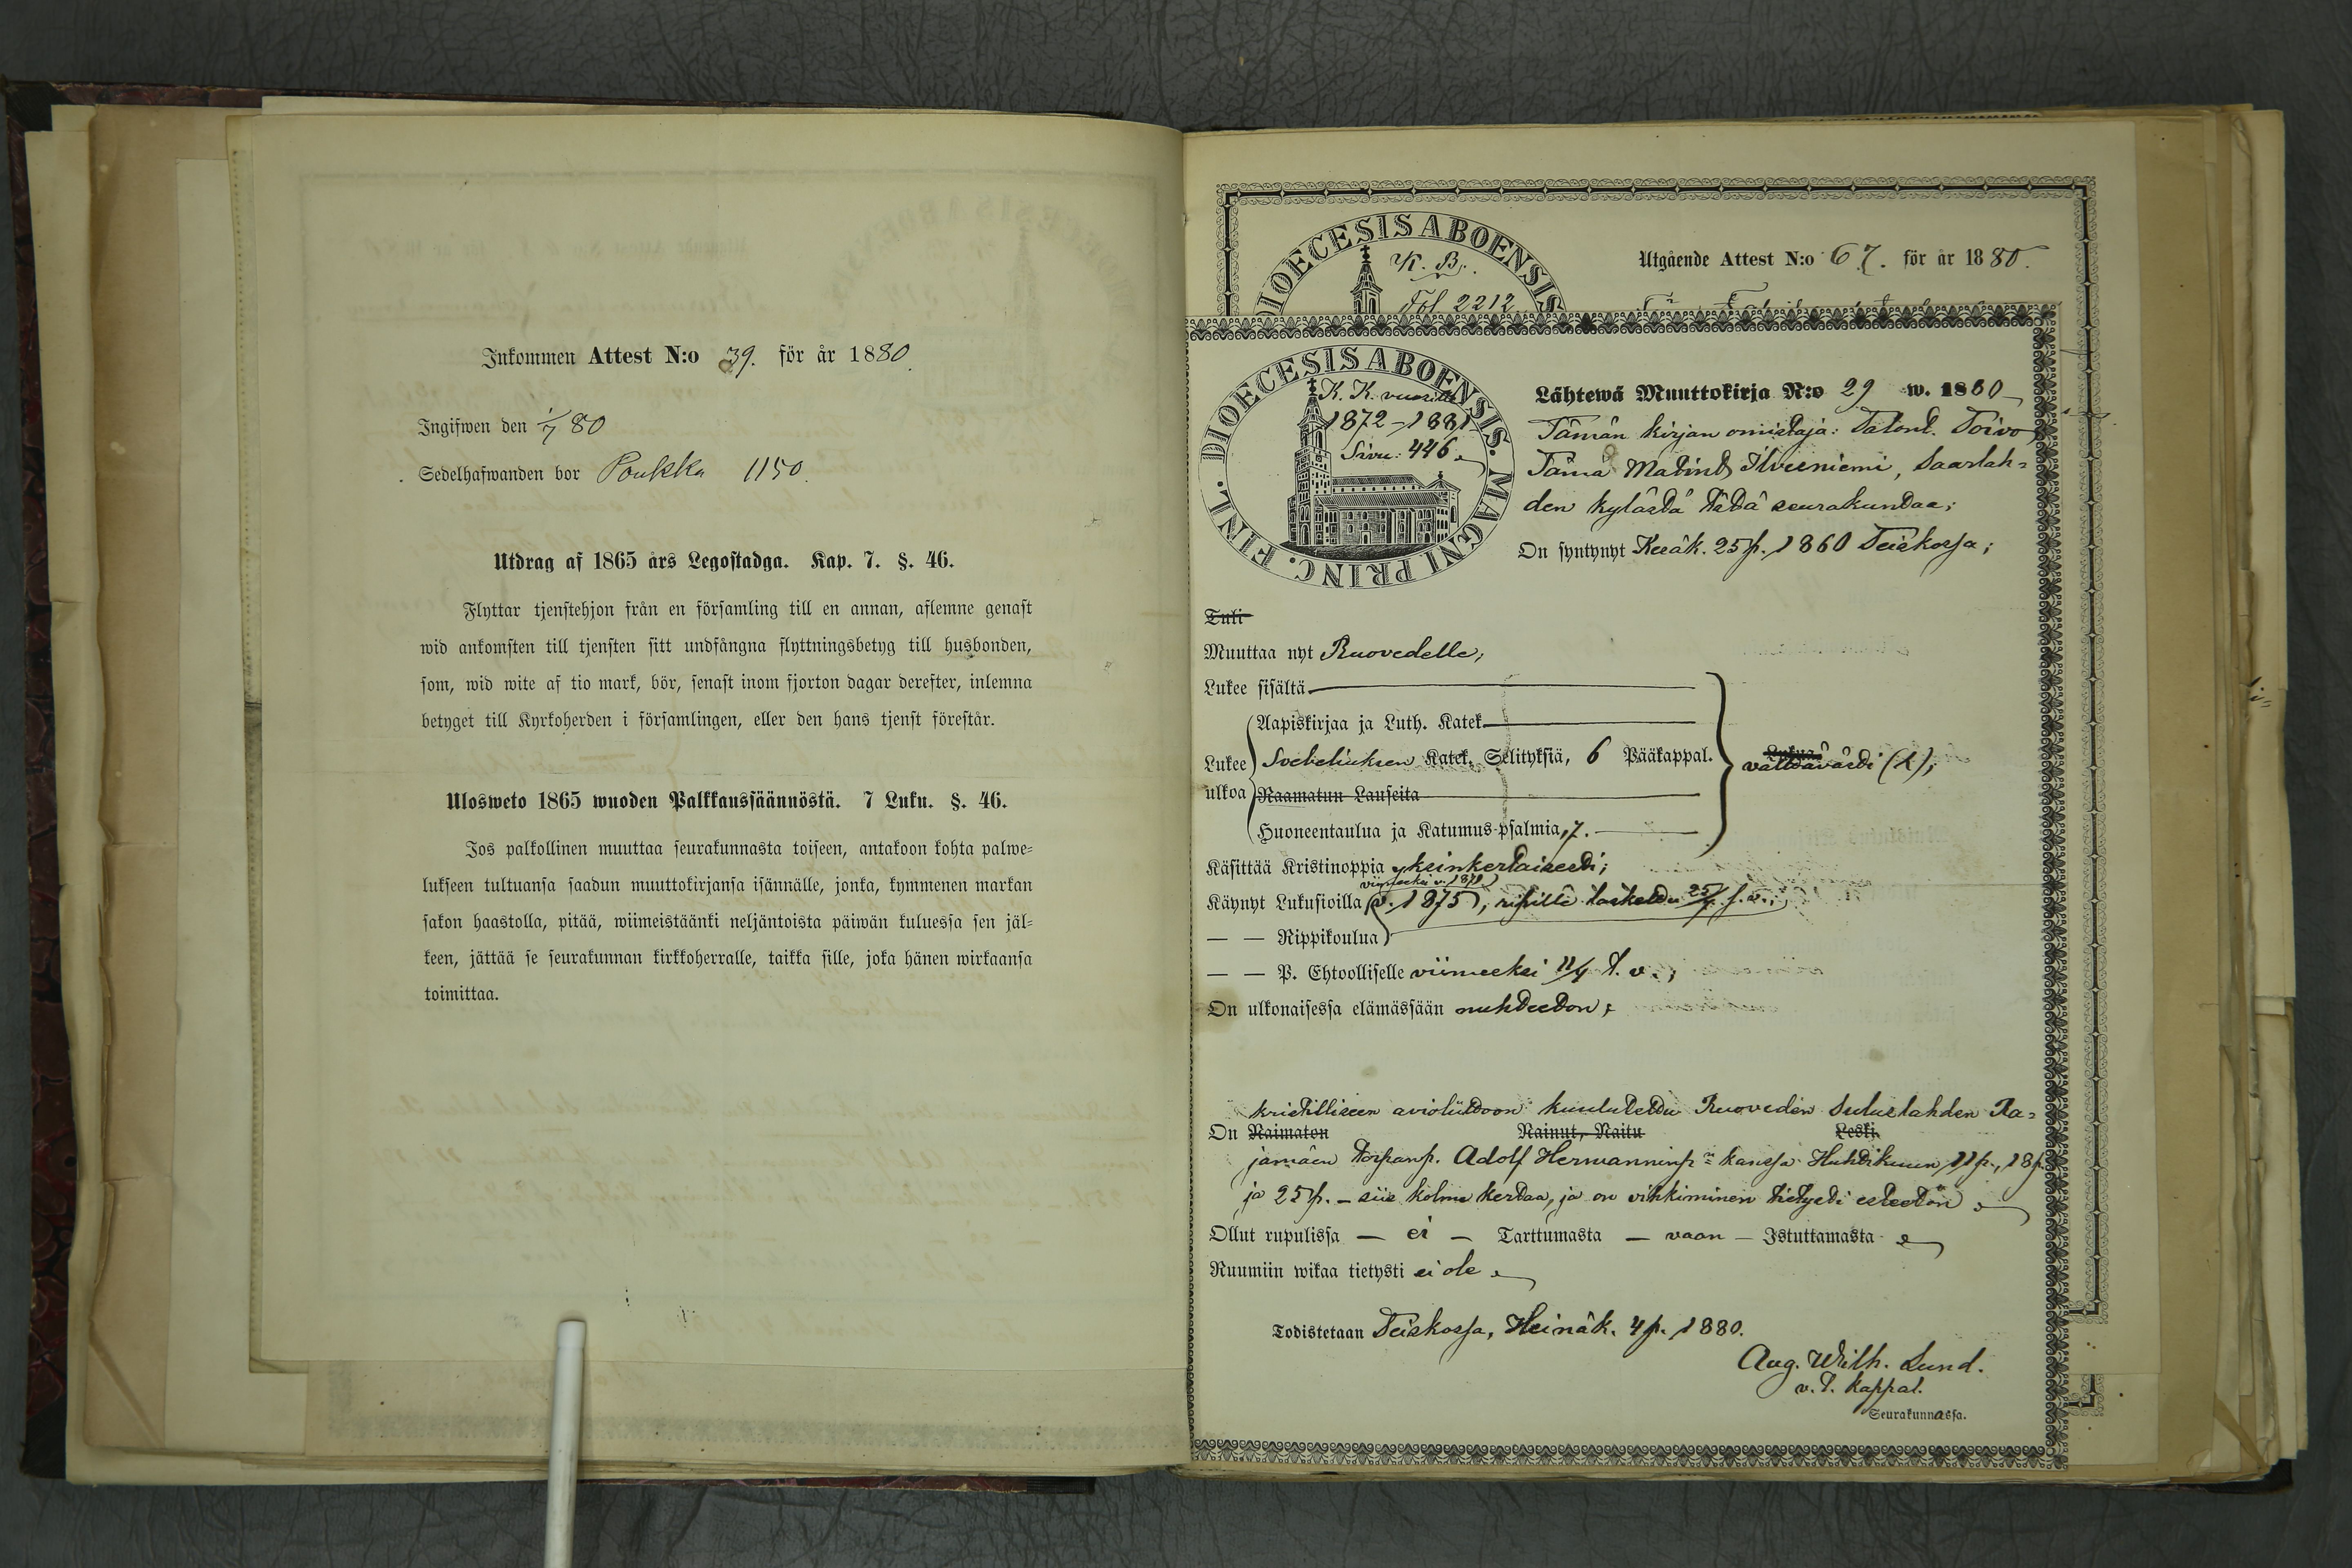 Inkommen Attest N:o 39. för år 1880.
Ingifwen den 1/7 80
Sedelhafwanden bor Poukka 1150.
Utdrag af 1865 års Legostadga. Kap. 7. §. 46.
Flyttar tjenstehjon från en församling till en annan, aflemne genast
wid ankomsten till tjensten sitt undfångna flyttningsbetyg till husbonden,
som, wid wite af tio mark, bör, senast inom fjorton dagar derefter, inlemna
betyget till Kyrkoherden i församlingen, eller den hans tjenst förestår.
Ulosweto 1865 wuoden Palkkaussäännöstä. 7 Luku. §. 46.
Jos palkollinen muuttaa seurakunnasta toiseen, antakoon kohta palwe=
lukseen tultuansa saadun muuttokirjansa isännälle, jonka, kymmenen markan
sakon haastolla, pitää, wiimeistäänki neljäntoista päiwän kuluessa sen jäl=
keen, jättää se seurakunnan kirkkoherralle, taikka sille, joka hänen wirkaansa
toimittaa.
DIOECESIS ABOENSIS
K. B.
Fol 2212
Utgående Attest N:o 67. för år 1880.
DIOECESIS ABOENSIS. MAGNI PRINC. FINL.
K. K. vuosilta
1872-1881
Sivu: 446.
Lähtewä Muuttokirja N:o 29 w. 1880
Tämän kirjan omistaja: Talont. Toivo
Taina Matint Ilvesniemi, Saarlah=
den kylästä tästä seurakuntaa;
On syntynyt Kesäk. 25 p. 1860 Teiskossa;
Tuli
Muuttaa nyt Ruovedelle;
Lukee sisältä
Aapiskirjaa ja Luth. Katek
Lukee ulkoa Svebeliuksen Katek. Selityksiä, 6 Pääkappal. välttävästi (h);
Raamatun Lauseita
Huoneentaulua ja Katumus-psalmia, 7.
Käsittää Kristinoppia yksinkertaisesti;
viimeeksi v. 1879
Käynyt Lukusioilla (v. 1875), ripille laskettu 25/7 s. v.;
— — Rippikoulua
— — P. Ehtoolliselle viimeeksi 11/4 t. v.;
On ulkonaisessa elämässään nuhteeton;
kristilliseen avioliittoon kuulutettu Ruoveden Suluslahden Ra=
On Naimaton Nainut, Naitu Leski
jamäen torpanp. Adolf Hermanninp:n kanssa Huhtikuun 11 p., 18 p.
ja 25 p. - siis kolme kertaa, ja on vihkiminen tietysti esteetön
Ollut rupulissa — ei — Tarttumasta — vaan — Istuttamasta
Ruumiin wikaa tietysti ei ole
Todistetaan Teiskossa, Heinäk. 4 p. 1880.
Aug. Wilh. Lund.
v. t. kappal.
Seurakunnassa.